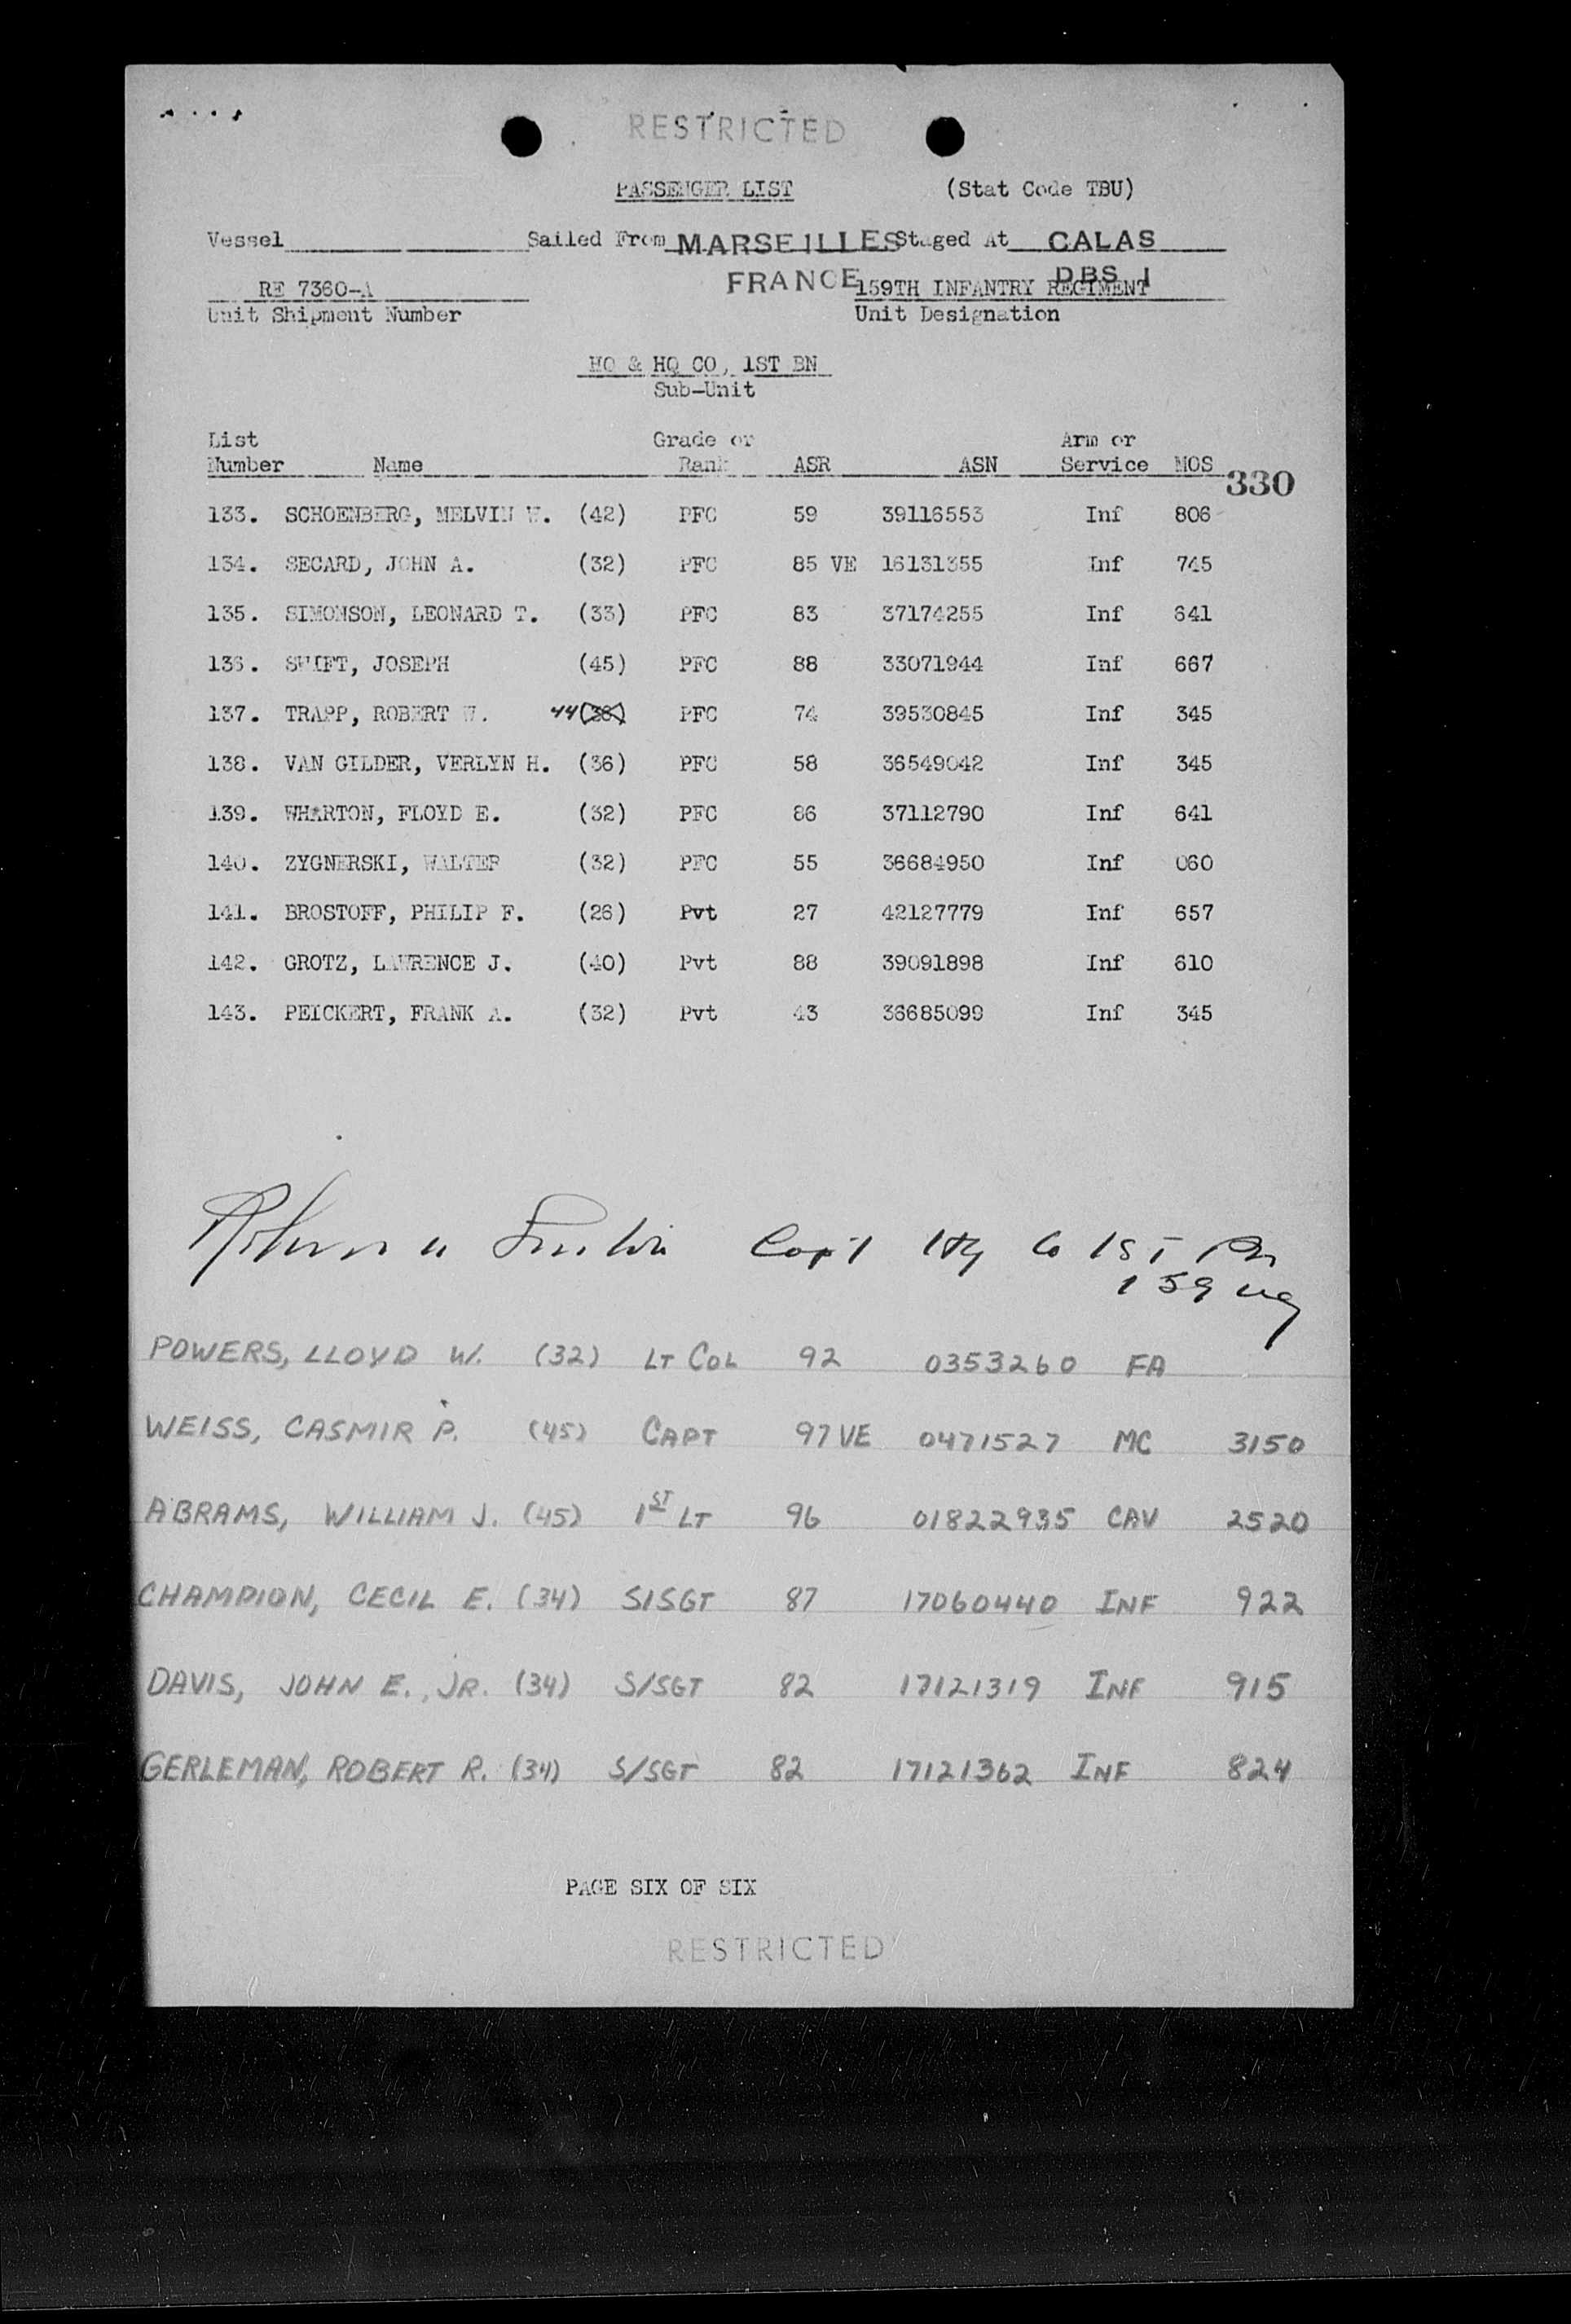 RESTRICTED
PASSENGER LIST (Stat Code TBU)
Vessel Sailed From MARSEILLES Staged At CALAS
FRANCE DBS 1
RE 7360-A 159TH INFANTRY REGIMENT
Unit Shipment Number Unit Designation
HQ & HQ CO, 1ST BN
Sub-Unit
List Grade or Arm or
Number Name Rank ASR ASN Service MOS
330
133. SCHOENBERG, MELVIN W. (42) PFC 59 39116553 Inf 806
134. SECARD, JOHN A. (32) PFC 85 VE 16131355 Inf 745
135. SIMONSON, LEONARD T. (33) PFC 83 37174255 Inf 641
136. SWIFT, JOSEPH (45) PFC 88 33071944 Inf 667
137. TRAPP, ROBERT W. 44 (38) PFC 74 39530845 Inf 345
138. VAN GILDER, VERLYN H. (36) PFC 58 36549042 Inf 345
139. WHARTON, FLOYD E. (32) PFC 86 37112790 Inf 641
140. ZYGNERSKI, WALTER (32) PFC 55 36684950 Inf 060
141. BROSTOFF, PHILIP F. (26) Pvt 27 42127779 Inf 657
142. GROTZ, LAWRENCE J. (40) Pvt 88 39091898 Inf 610
143. PEICKERT, FRANK A. (32) Pvt 43 36685099 Inf 345
Capt Hq Co 1ST Bn
159
POWERS, LLOYD W. (32) LT COL 92 0353260 FA
WEISS, CASMIR P. (45) CAPT 97 VE 0471527 MC 3150
ABRAMS, WILLIAM J. (45) 1ST LT 96 01822935 CAV 2520
CHAMPION, CECIL E. (34) S/SGT 87 17060440 INF 922
DAVIS, JOHN E., JR. (34) S/SGT 82 17121319 INF 915
GERLEMAN, ROBERT R. (34) S/SGT 82 17121362 INF 824
PAGE SIX OF SIX
RESTRICTED